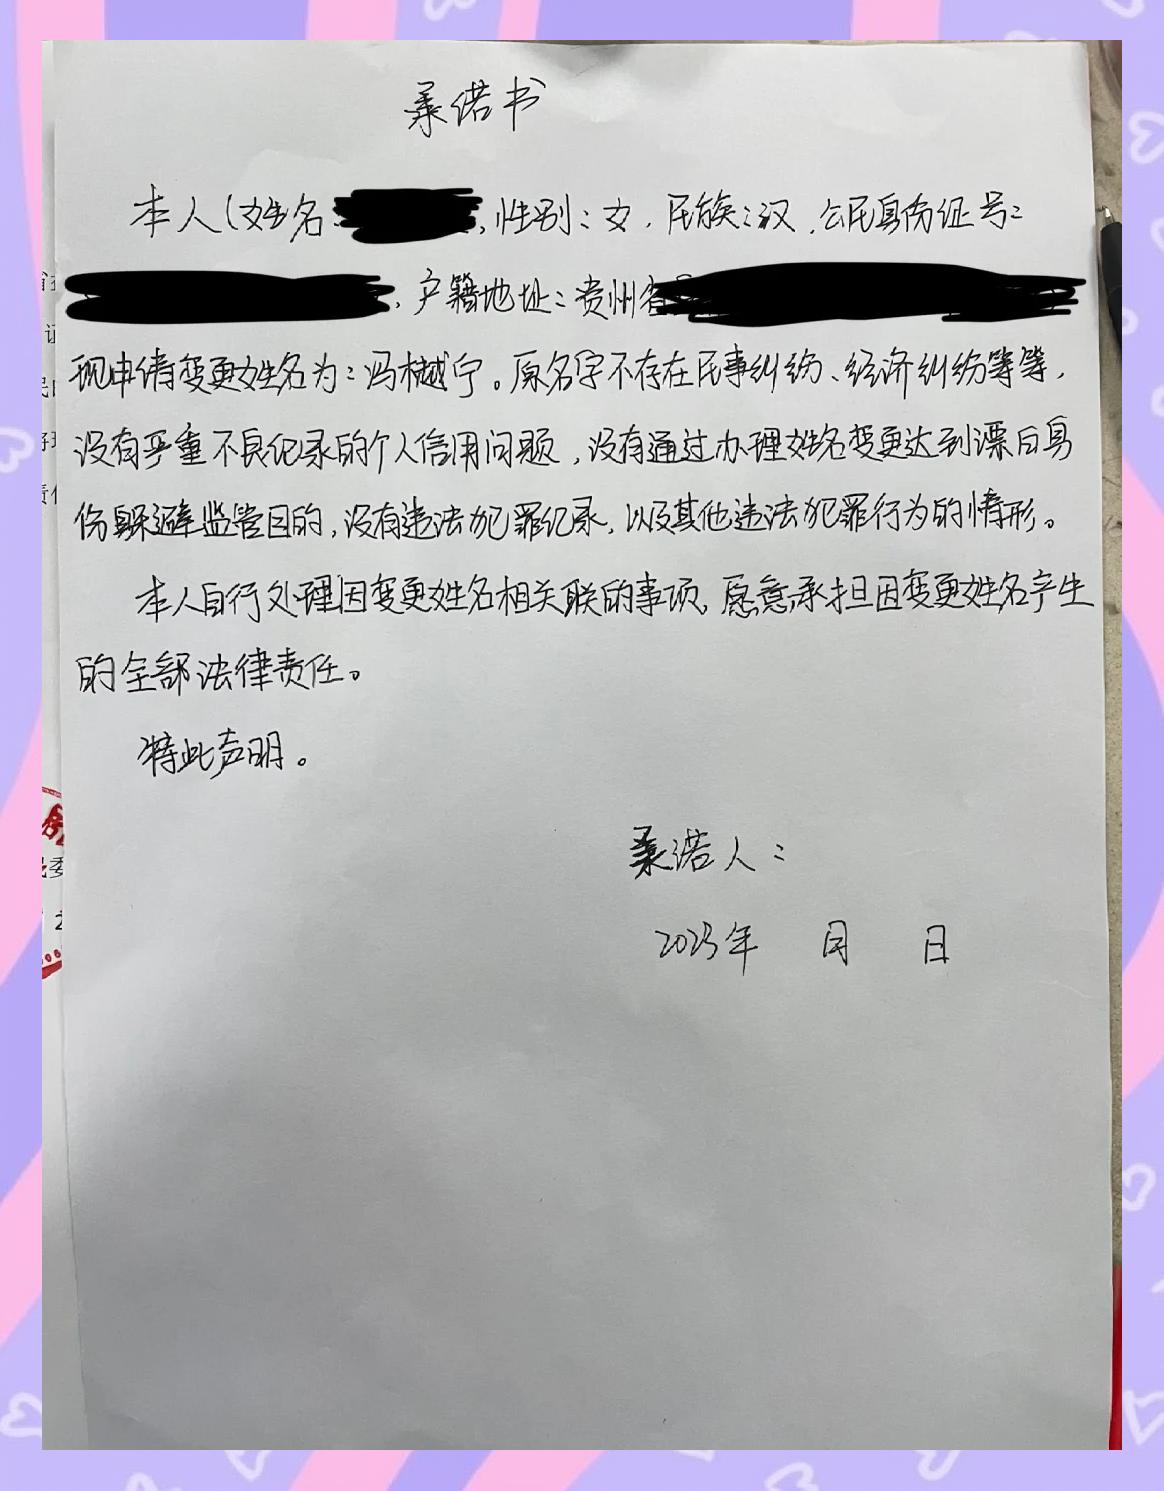 承诺书
本人(姓名:,性别:女,民族:汉,公民身份证号:
,户籍地址:贵州省
现申请变更姓名为:冯樾宁。原名字不存在民事纠纷、经济纠纷等等,
没有严重不良纪录的个人信用问题,没有通过办理姓名变更达到漂白身
份躲避监管目的,没有违法犯罪纪录,以及其他违法犯罪行为的情形。
本人自行处理因变更姓名相关联的事项,愿意承担因变更姓名产生
的全部法律责任。
特此声明。
承诺人:
2023年 月 日